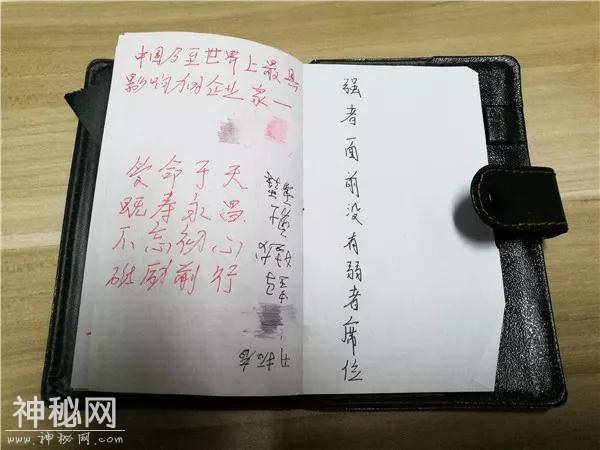 中国乃至世界上最具
影响力的企业家一
受命于天
既寿永昌
不忘初心
砥砺前行
强者面前没有弱者席位
神秘网
www.神秘网.com